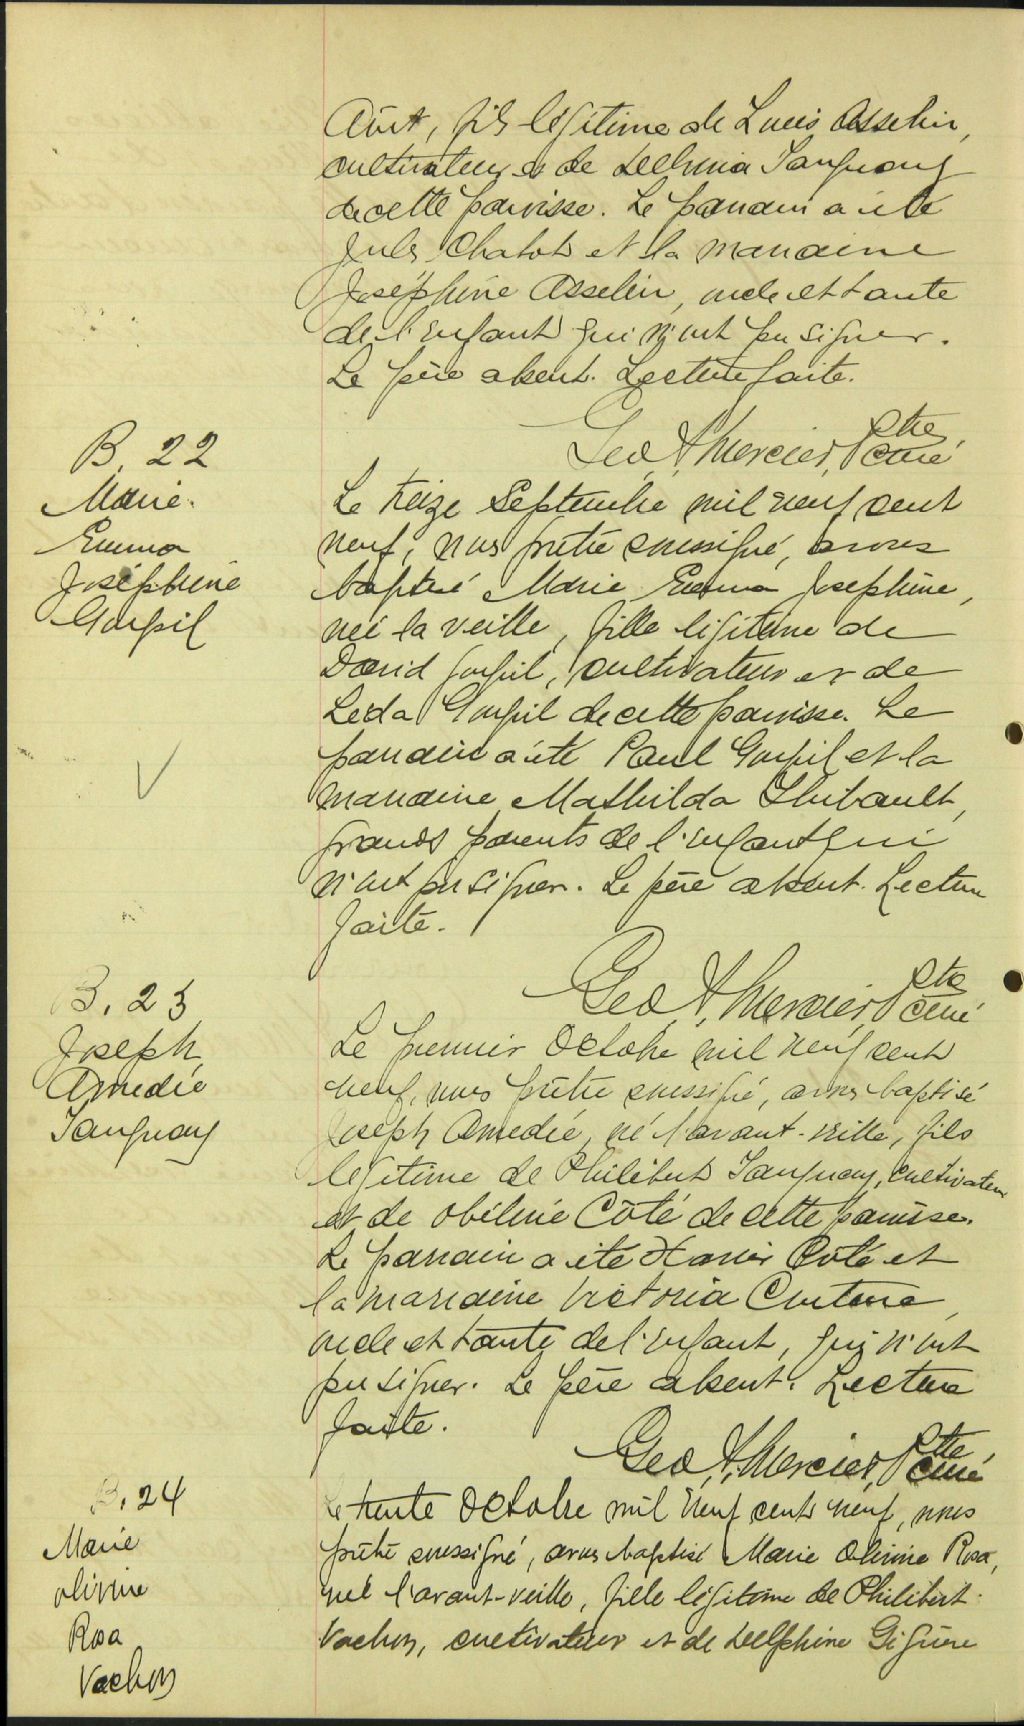 Août, fils légitime de Louis Asselin,
cultivateur et de Delhima Tanguay
de cette paroisse. Le parrain a été
Jules Chabot et la marraine
Joséphine Asselin, oncle et tante
de l'enfant qui n'ont pu signer.
Le père absent. Lecture faite.
Geo. A. Mercier, Ptre
curé
B. 22
Marie
Emma
Joséphine
Goupil
Le treize Septembre mil neuf cent
neuf, nous prêtre soussigné, avons
baptisé Marie Emma Joséphine,
née la veille, fille légitime de
David Goupil, cultivateur et de
Léda Goupil de cette paroisse. Le
parrain a été Paul Goupil et la
marraine Mathilda Thibault,
grands parents de l'enfant qui
n'ont pu signer. Le père absent. Lecture
faite.
Geo. A. Mercier, Ptre
curé
B. 23
Joseph
Amedée
Tanguay
Le premier Octobre mil neuf cent
neuf, nous prêtre soussigné, avons baptisé
Joseph Amedée, né l'avant-veille, fils
légitime de Philibert Tanguay, cultivateur
et de Obéline Côté de cette paroisse.
Le parrain a été Xavier Côté et
la marraine Victoria Couture,
oncle et tante de l'enfant, qui n'ont
pu signer. Le père absent. Lecture
faite.
Geo. A. Mercier, Ptre
curé
B. 24
Marie
Olivine
Rosa
Vachon
Le trente Octobre mil neuf cent neuf, nous
prêtre soussigné, avons baptisé Marie Olivine Rosa,
née l'avant-veille, fille légitime de Philibert
Vachon, cultivateur et de Delphine Giguère